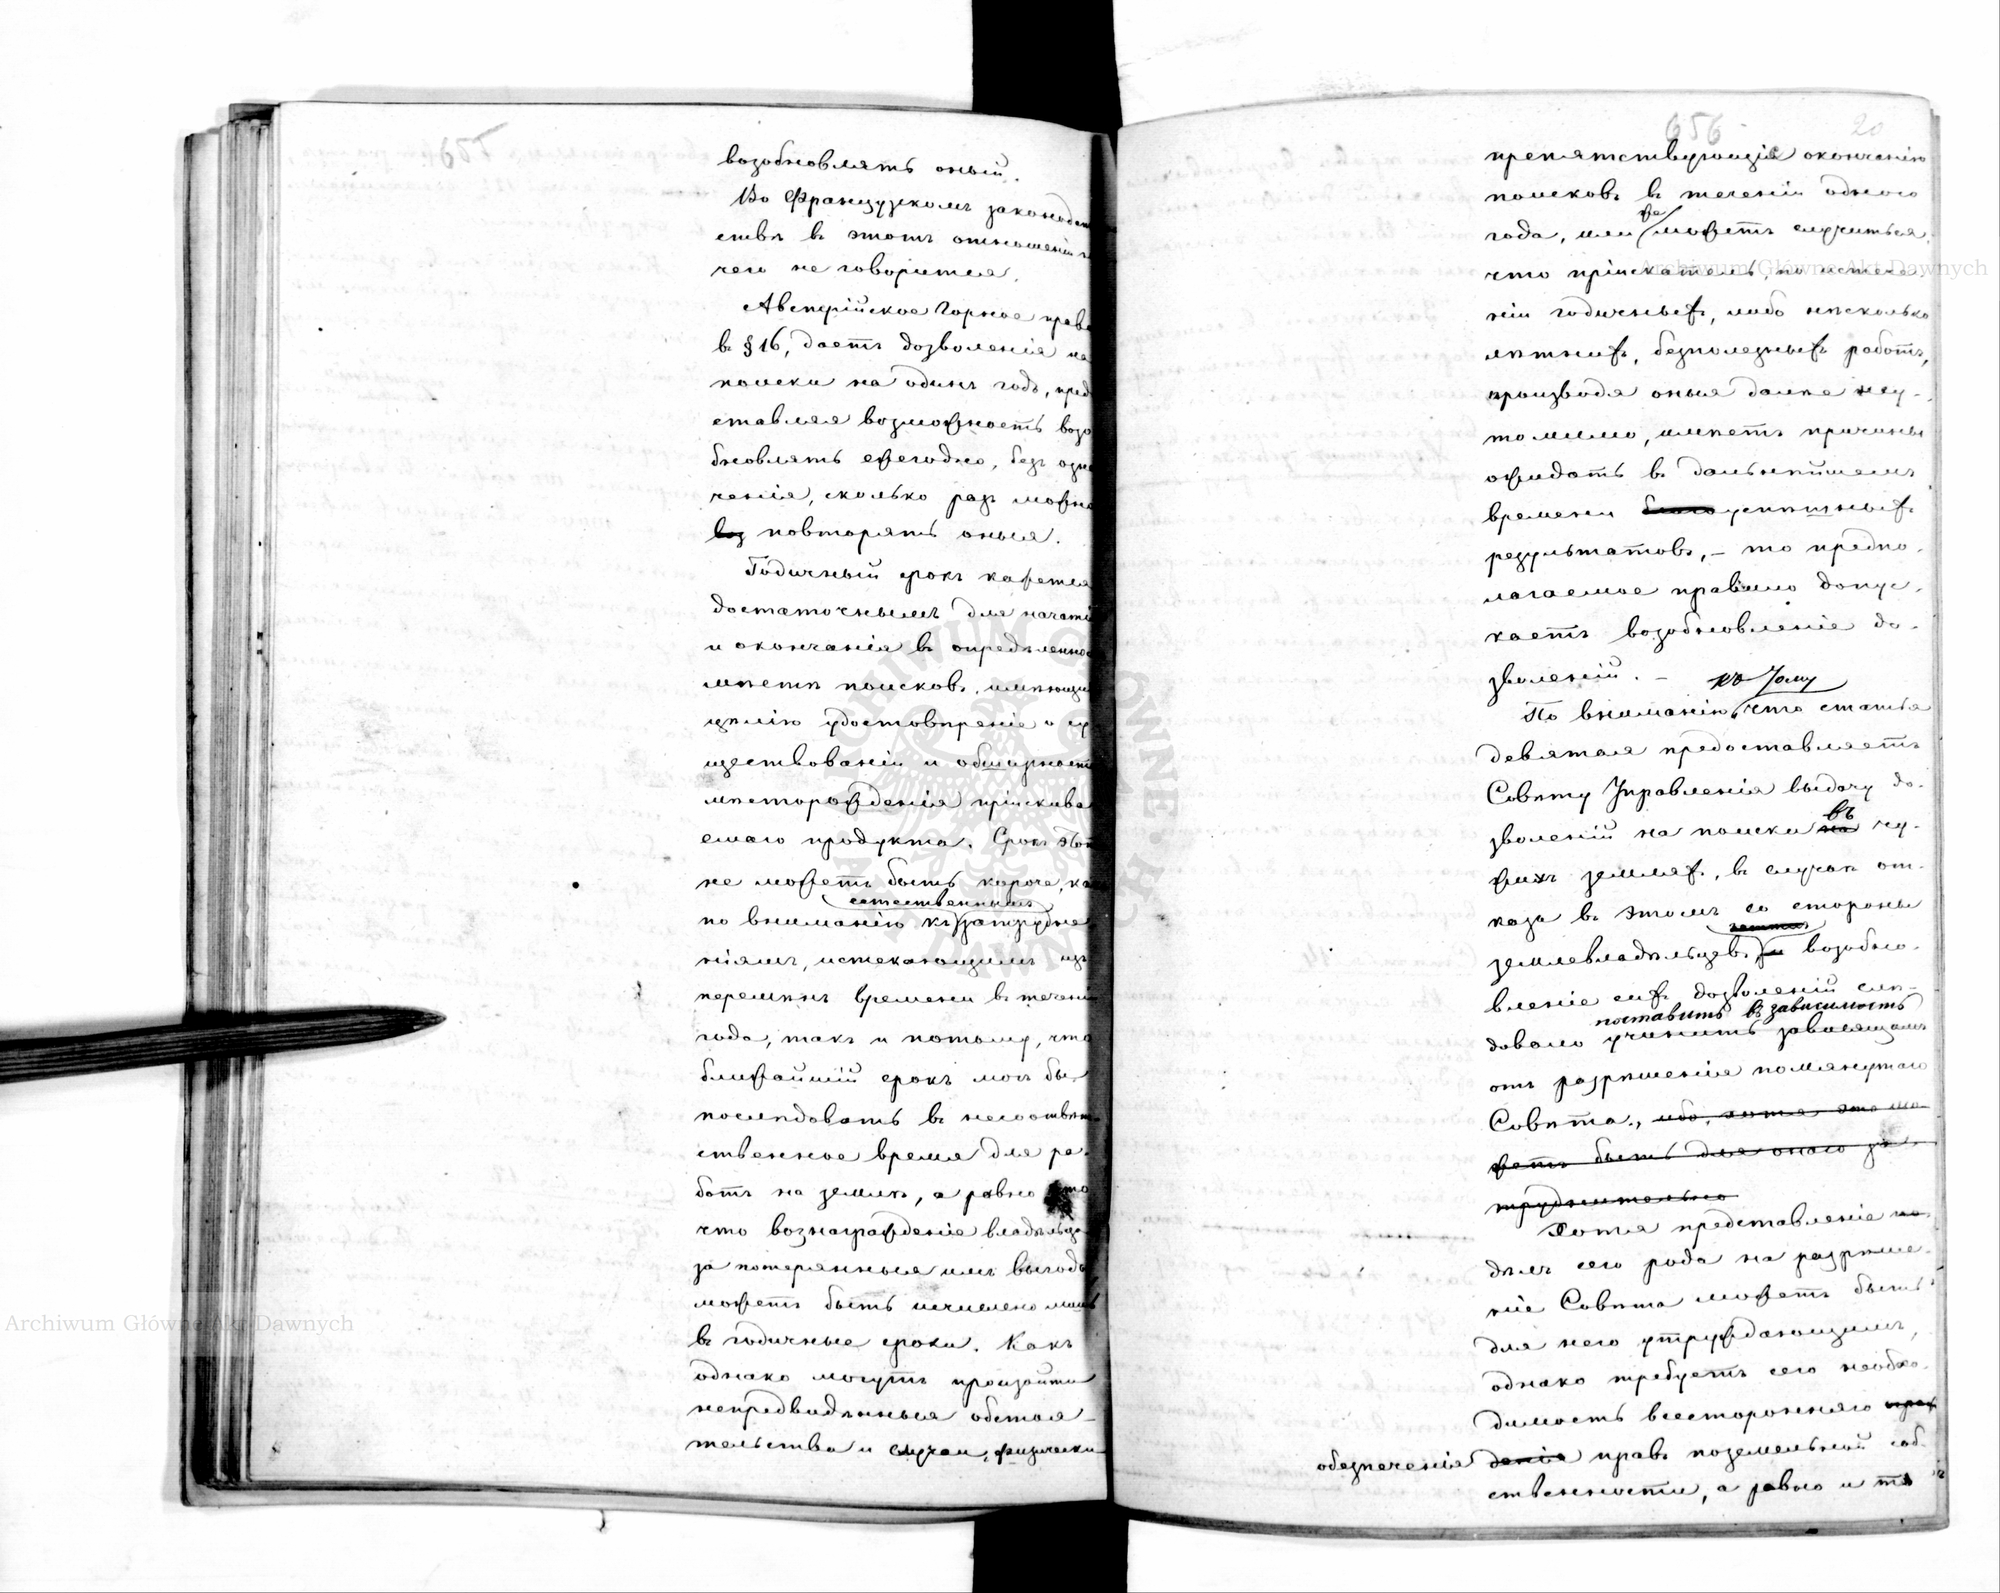 возобновлять оный.
Во Французкомъ законодат
ствѣ въ этотъ отношеніи н
чего не говорится.
Австрійское Горное право
въ § 16, даетъ дозволенія на
поиски на одинъ годъ, пред
ставляя возможность возо
бновлять ежегодно, безъ огра
ченія, сколько разъ можно
воз повторять оныя.
Годичный срокъ кажется
достаточнымъ для начатія
и окончанія въ опредѣленно
мѣстѣ поисковъ, имѣющи
цѣлію удостовѣреніе о су
ществованіи и обширност
мѣсторожденія пріискива
емаго продукта. Срокъ этотъ
не можетъ быть короче, ка
естественнымъ
по вниманію къ затрудне
ніямъ, истекающимъ изъ
перемѣнъ времени въ теченіи
года, такъ и потому, что
ближайшій срокъ могъ бы
послѣдовать въ несоотвѣт
ственное время для ра-
ботъ на землѣ, а равно
что вознагражденіе владѣльца
за потерянныя имъ выгоды
можетъ быть исчислено лишь
въ годичные сроки. Какъ
однако могутъ произойти
непредвидѣнныя обстоя-
тельства и случаи, физически
656
20
препятствующія окончанію
поисковъ въ теченіи одного
же
года, или можетъ случиться,
что пріискатель, по истече-
ніи годичныхъ, либо нѣсколько
лѣтнихъ, безполезныхъ работъ,
производя оныя далѣе неу-
томимо, имѣетъ причины
ожидать въ дальнѣйшемъ
времени благоуспѣшныхъ
результатовъ, – то предпо-
лагаемое правило допус-
каетъ возобновленіе до-
зволеній. –
къ тому
По вниманію, что статья
девятая предоставляетъ
Совѣту Управленія выдачу до-
въ
зволеній на поиски на чу-
жихъ земляхъ, въ случаѣ от-
каза въ этомъ со стороны
землевладѣльцевъ, и возобно-
вленіе сихъ дозволеній слѣ-
поставить въ зависимость
довало учинить зависящимъ
отъ разрѣшенія помянутаго
Совѣта., ибо, хотя это мо-
жетъ быть для онаго за-
труднительно
Хотя представленіе по-
дѣлъ сего рода на разрѣше-
ніе Совѣта можетъ быть
для него утруждающимъ,
однако требуетъ сего необхо-
димость всесторонняго
обезпеченія денія правъ поземельной соб-
ственности, а равно и то